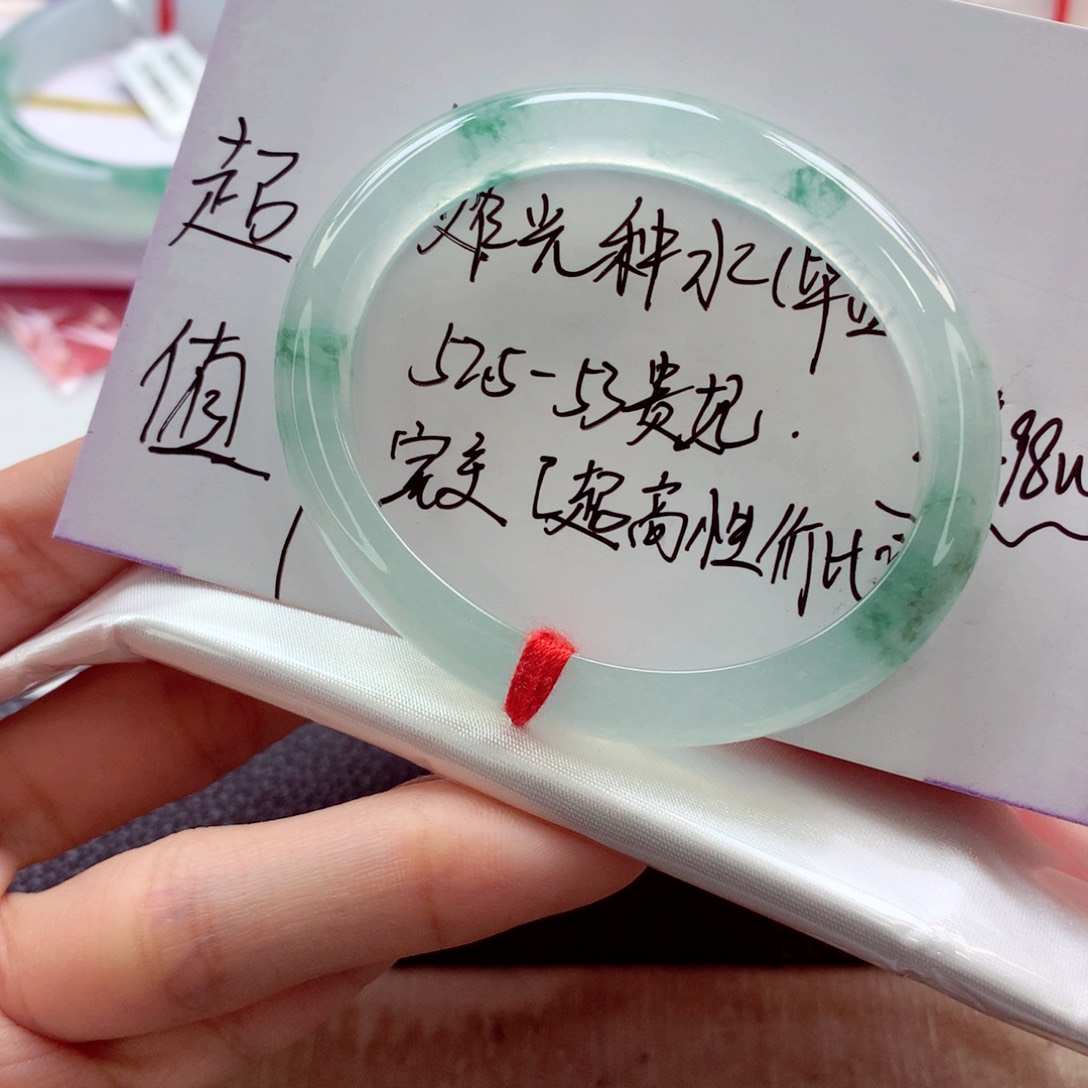 超值
炸光种水(毕业
525-53贵妃.
完美【超高性价比
98u